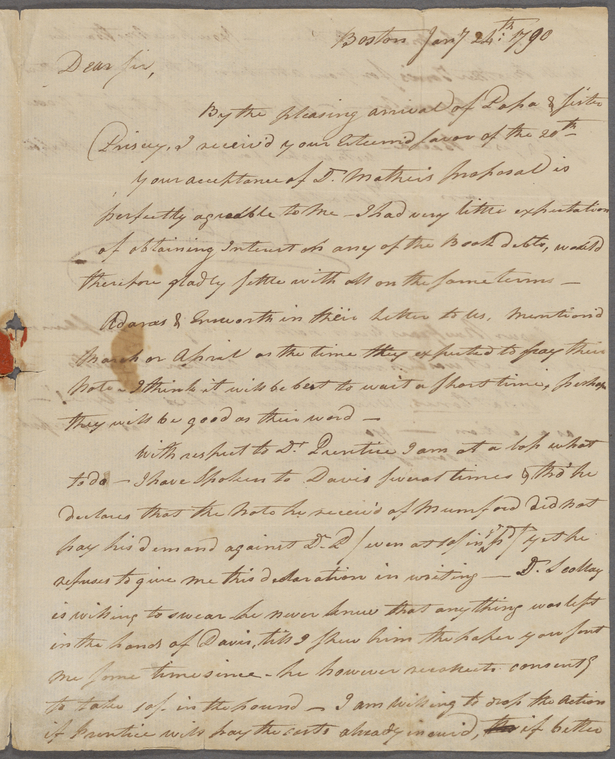 Boston Jany 24th: 1790
Dear Sir,
By the pleasing arrival of Papa & Sister
Priscy, I receiv'd your Esteem'd favor of the 20th
Your acceptance of Dr. Mather's proposal is
perfectly agreeble to me - I had very little expectation
of obtaining Interest on any of the Book debts, would
therefore gladly settle with all on the same terms -
Adams & in their Letter to us, mention'd
March or April as the time they expected to pay their
Note - I think it will be best to wait a short time, perhaps
they will be good as their word -
With respect to Dr. Prentice I am at a loss what
to do - I have spoken to Davis several times & tho' he
declares that the Note he receiv'd of Mumford did not
pay his demand against Dr. P / even at 10/ in ye pd / yet he
refuses to give me this declaration in writing - Dr. Scollay
is willing to swear he never knew that any thing was left
in the hands of Davis, till I shew him the paper you sent
me some time since - he however consents
to take 10/. in the pound - I am willing to drop the action
if Prentice will pay the costs already incurr'd, if better